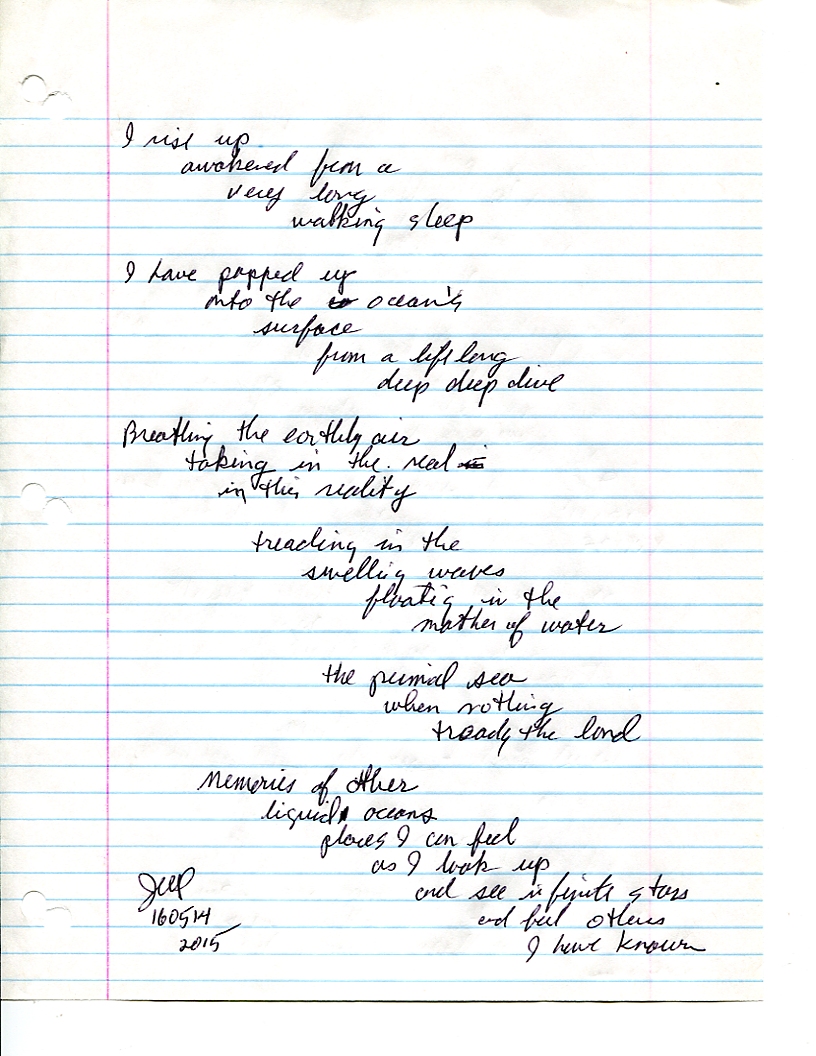 I rise up
awakened from a
very long
walking sleep
I have popped up
onto the ocean's
surface
from a lifelong
deep deep dive
Breathing the earthly air
taking in the real
in this reality
treading in the
swelling waves
floating in the
mother of water
the primal sea
when nothing
the land
Memories of other
liquid oceans
places I can feel
as I look up
and see infinite stars
and feel others
I have known
160514
2015